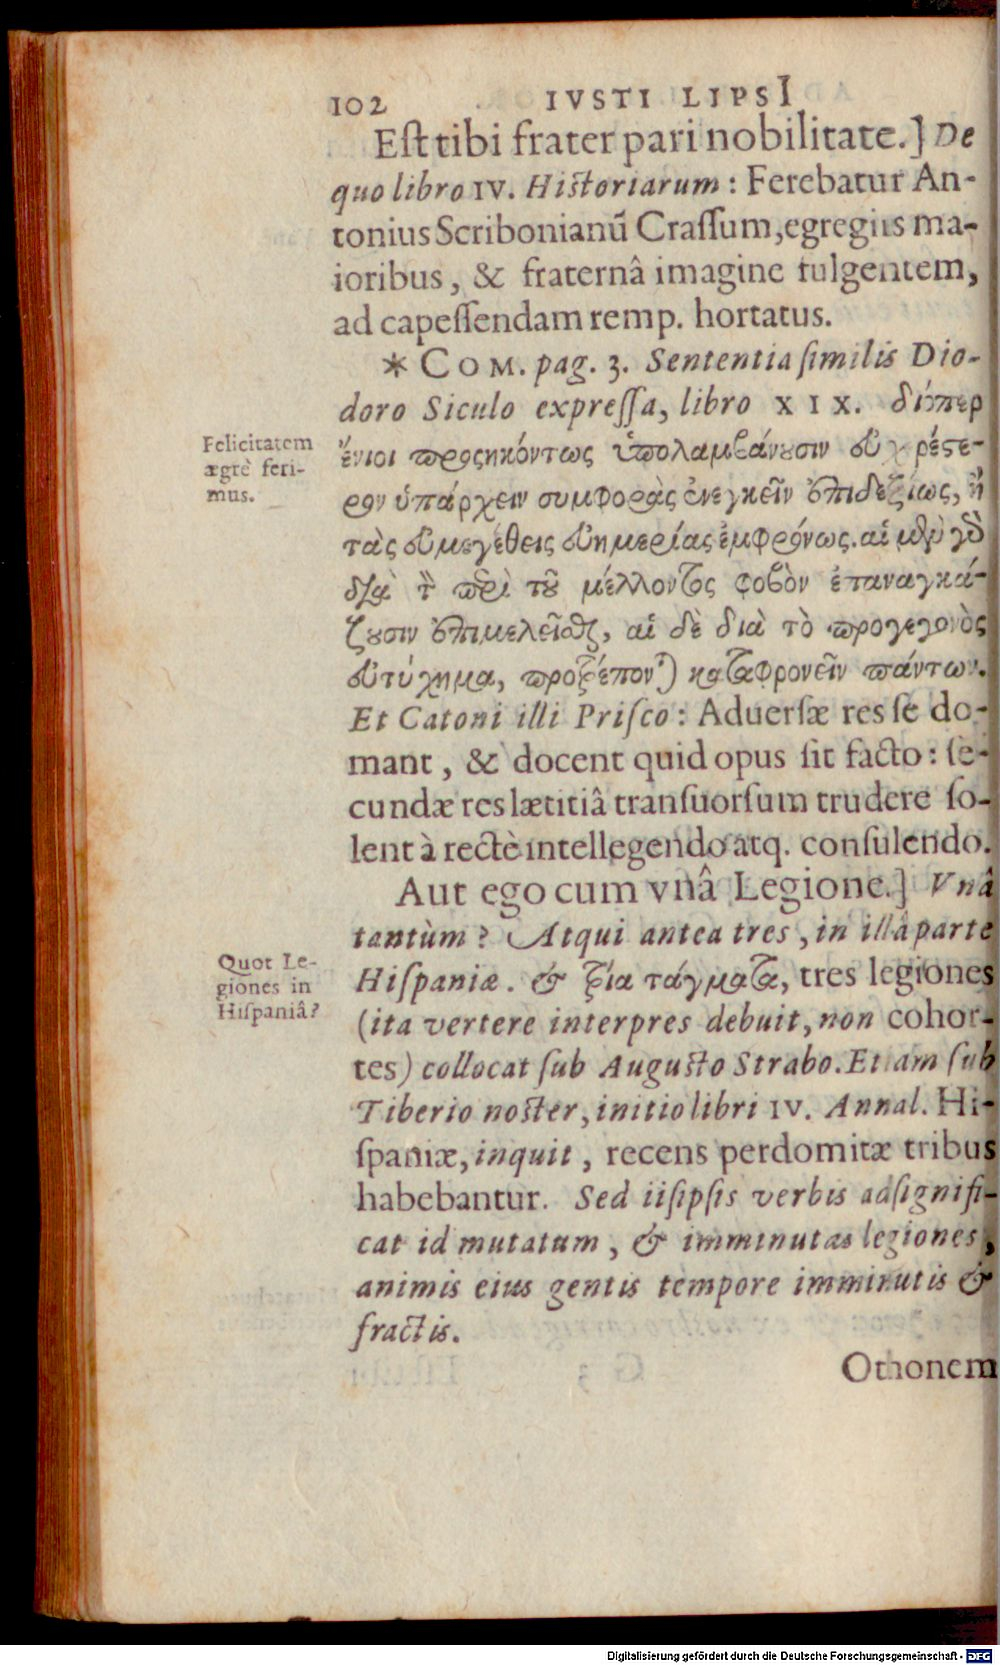 102 IVSTI LIPSI
Eſt tibi frater pari nobilitate.] De
quo libro IV. Hiſtoriarum: Ferebatur An-
tonius Scribonianū Craſſum, egregiis ma-
ioribus, & fraternâ imagine fulgentem,
ad capeſſendam remp. hortatus.
* COM. pag. 3. Sententia ſimilis Dio-
doro Siculo expreſſa, libro XIX. διόπερ
Felicitatem
ægrè feri-
mus.
ἔνιοι προσηκόντως ὑπολαμβάνουσιν εὐχρέστε-
ρον ὑπάρχειν συμφορὰς ἐνεγκεῖν ἐπιδεξίως, ἢ
τὰς εὐμεγέθεις εὐημερίας ἐμφρόνως. αἱ μὲν γὸ
διὰ τ̀ περὶ τοῦ μέλλοντος φοβὸν ἐπαναγκά-
ζουσιν ἐπιμελεῖσθαι, αἱ δὲ διὰ τὸ προγεγονὸς
εὐτύχημα, προτρέπονται καταφρονεῖν πάντων.
Et Catoni illi Priſco: Aduerſæ res ſe do-
mant, & docent quid opus ſit facto: ſe-
cundæ res lætitiâ tranſuorſum trudere ſo-
lent à rectè intellegendo atq. conſulendo.
Aut ego cum vnâ Legione.] Vnâ
tantùm? Atqui antea tres, in illâ parte
Quot Le-
giones in
Hiſpaniâ?
Hiſpaniæ. & τρία τάγματα, tres legiones
(ita vertere interpres debuit, non cohor-
tes) collocat ſub Auguſto Strabo. Etiam ſub
Tiberio noſter, initio libri IV. Annal. Hi-
ſpaniæ, inquit, recens perdomitæ tribus
habebantur. Sed iiſipſis verbis adſignifi-
cat id mutatum, & imminutas legiones,
animis eius gentis tempore imminutis &
fractis.
Othonem
Digitalisierung gefördert durch die Deutsche Forschungsgemeinschaft - DFG